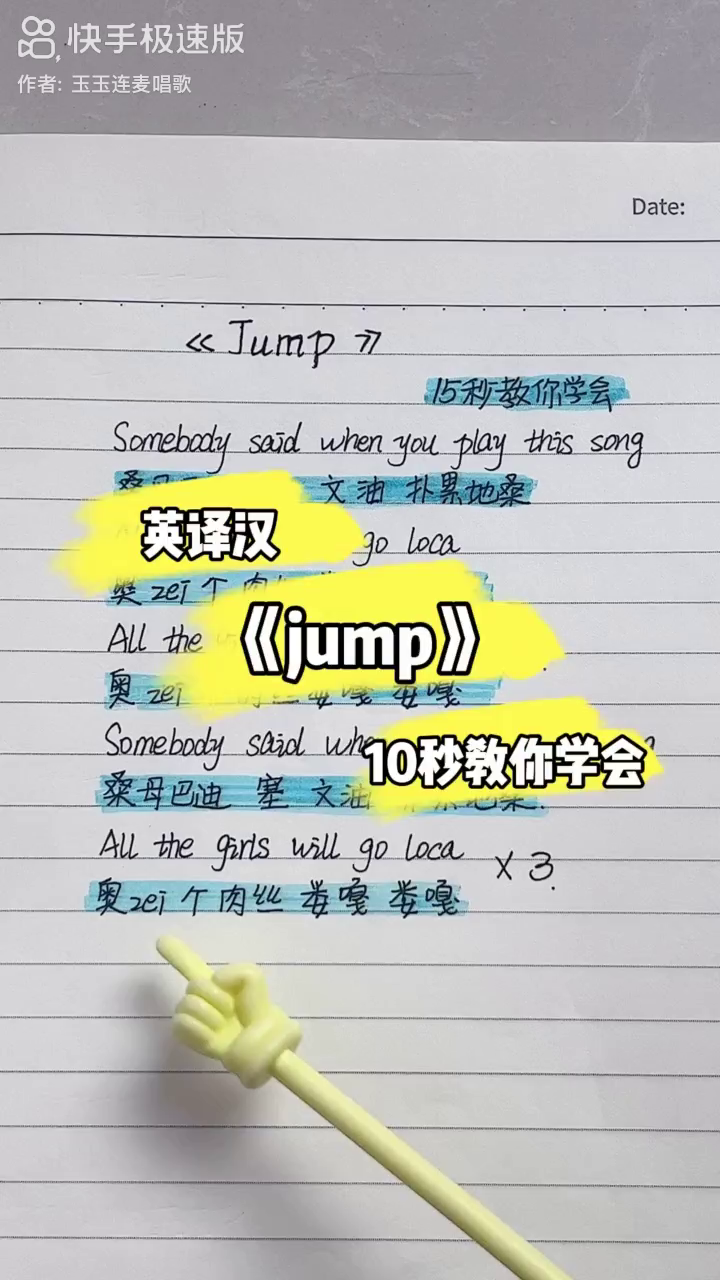 快手极速版
作者: 玉玉连麦唱歌
Date:
《Jump》
15秒教你学会
Somebody said when you play this song
文油 扑累地桑
英译汉
go loca
奥zei个
《jump》
All the
奥zei 娄嘎 娄嘎
Somebody said
10秒教你学会
桑母巴迪 塞 文油
All the girls will go loca
x3.
奥zei个肉丝 娄嘎 娄嘎